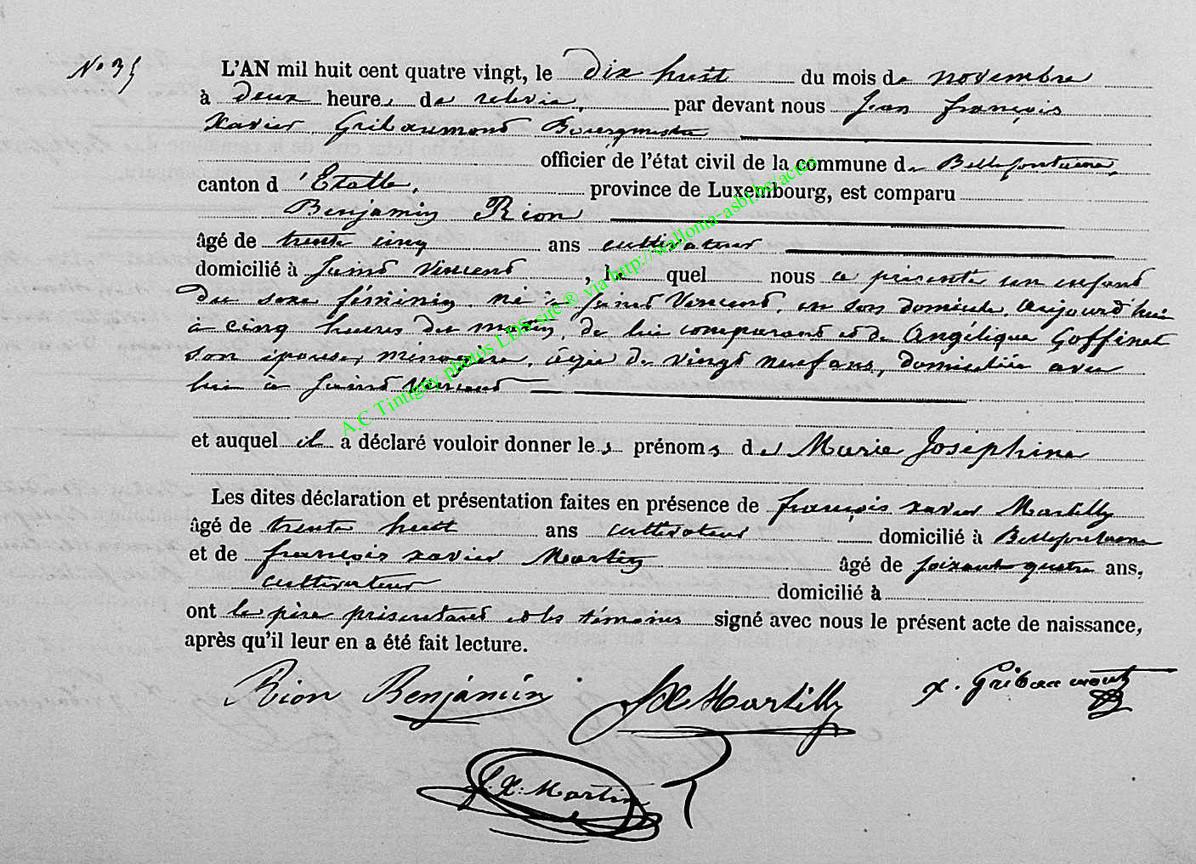 N° 35
L'AN mil huit cent quatre vingt, le dix huit du mois de novembre
à deux heures de relevée, par devant nous Jean françois
Xavier Gribaumont Bourgmestre
officier de l'état civil de la commune de Bellefontaine,
canton d'Etalle, province de Luxembourg, est comparu
Benjamin Rion
âgé de trente cinq ans cultivateur
domicilié à Saint Vincent, lequel nous a présenté un enfant
du sexe féminin né à Saint Vincent, en son domicile, aujourd'hui
à cinq heures du matin, de lui comparant et de Angélique Goffinet
son épouse, menagère, agée de vingt neuf ans, domiciliée avec
lui à Saint Vincent
et auquel il a déclaré vouloir donner les prénoms de Marie Joséphine
Les dites déclaration et présentation faites en présence de françois xavier Martilly
âgé de trente huit ans cultivateur domicilié à Bellefontaine
et de françois xavier Martin âgé de soixante quatre ans,
cultivateur domicilié à
ont le père présentant et les témoins signé avec nous le présent acte de naissance,
après qu'il leur en a été fait lecture.
Rion Benjamin FX Martilly X. Gribaumont
f. X. Martin
A.C Tintigny photos LDS-suc® via http://wallonia-asbl/bs/actes